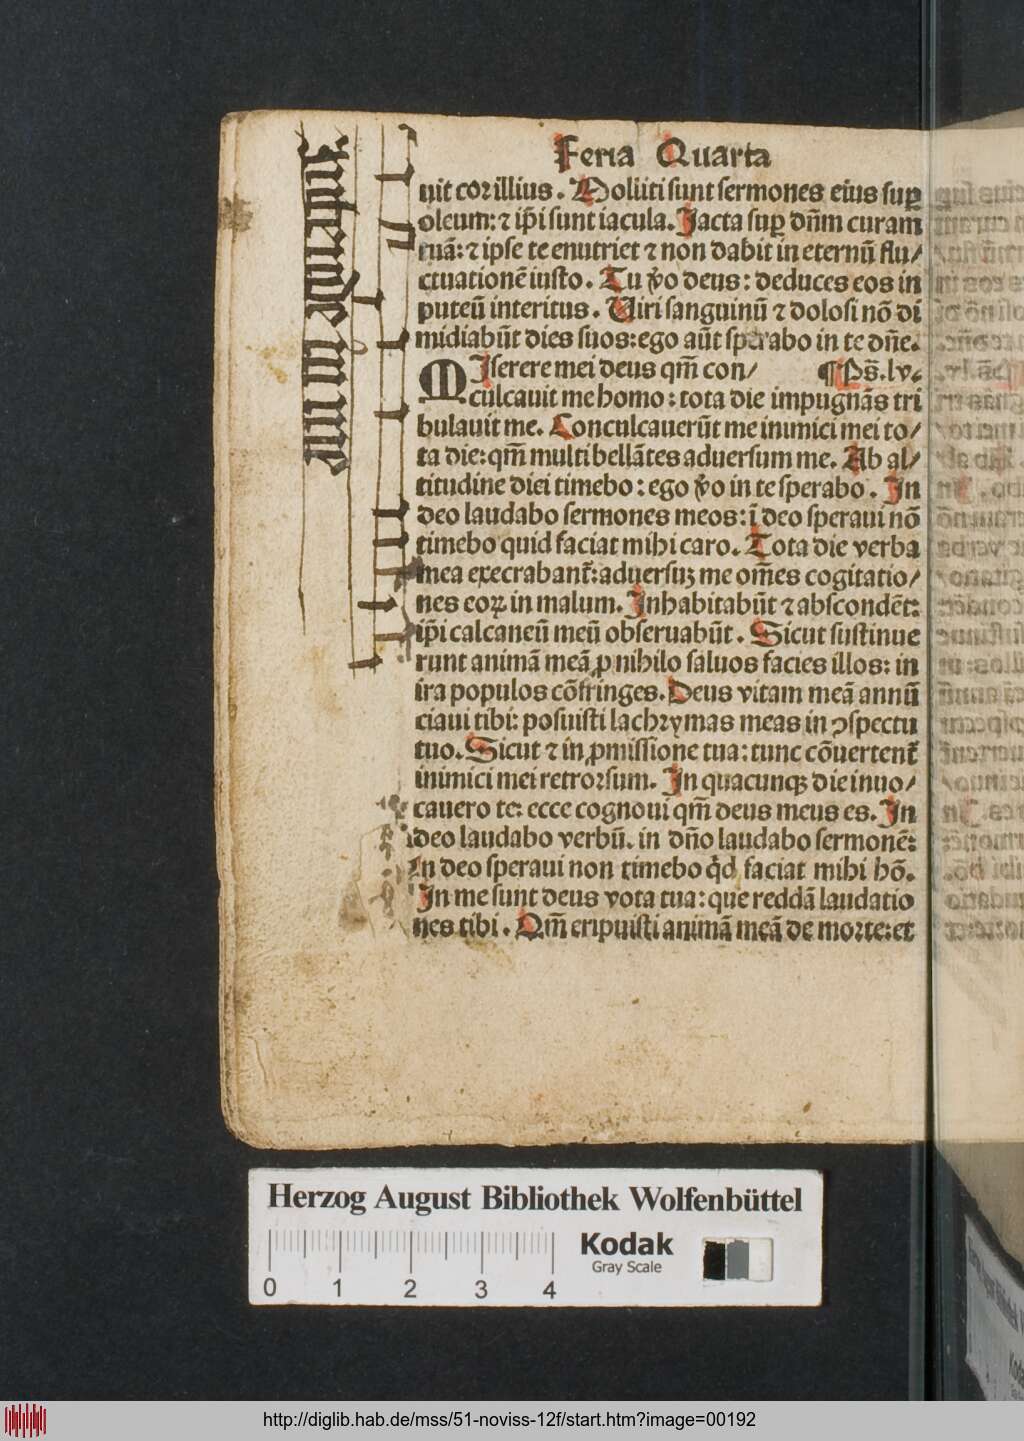 Feria Quarta
uit cor illius. Moliiti sunt sermones eius suꝑ
oleum: ⁊ ip̄i sunt iacula. Jacta suꝑ dn̄m curam
tuā: ⁊ ipse te enutriet ⁊ non dabit in eternū flu/
ctuationē iusto. Tu ꝟo deus: deduces eos in
puteū interitus. Uiri sanguinū ⁊ dolosi nō di
midiabūt dies suos: ego aūt sperabo in te dn̄e.
MIserere mei deus qm̄ con/ ¶ Ps̄. lv.
culcauit me homo: tota die impugnās tri
bulauit me. Conculcauerūt me inimici mei to/
ta die: qm̄ multi bellātes aduersum me. Ab al/
titudine diei timebo: ego ꝟo in te sperabo. In
deo laudabo sermones meos: ī deo speraui nō
timebo quid faciat mihi caro. Tota die verba
mea execrabant̄: aduersuꝫ me om̄es cogitatio/
nes eoꝝ in malum. Inhabitabūt ⁊ abscondēt:
ip̄i calcaneū meū obseruabūt. Sicut sustinue
runt animā meā ꝓ nihilo saluos facies illos: in
ira populos cōfringes. Deus vitam meā annū
ciaui tibi: posuisti lachrymas meas in ꝯspectu
tuo. Sicut ⁊ in ꝓmissione tua: tunc cōuertent̄
inimici mei retrorsum. In quacunqꝫ die inuo/
cauero te: ecce cognoui qm̄ deus meus es. In
deo laudabo verbū. in dn̄o laudabo sermonē:
In deo speraui non timebo qd̄ faciat mihi hō.
In me sunt deus vota tua: que reddā laudatio
nes tibi. Qm̄ eripuisti animā meā de morte: et
Herzog August Bibliothek Wolfenbüttel
Kodak
Gray Scale
0 1 2 3 4
http://diglib.hab.de/mss/51-noviss-12f/start.htm?image=00192